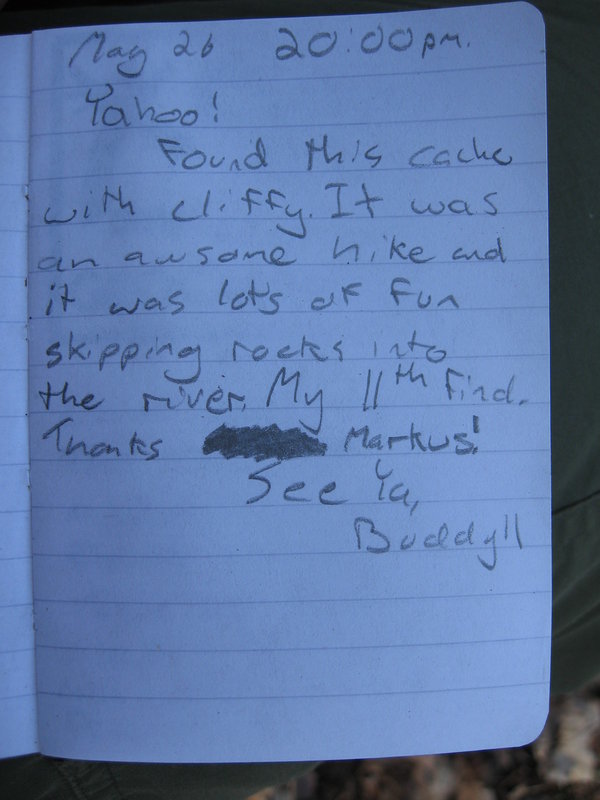 May 26 20:00pm.
Yahoo!
Found this cache
with cliffy. It was
an awsome hike and
it was lots of fun
skipping rocks into
the river. My 11th find.
Thanks Markus!
See Ya,
Buddy11